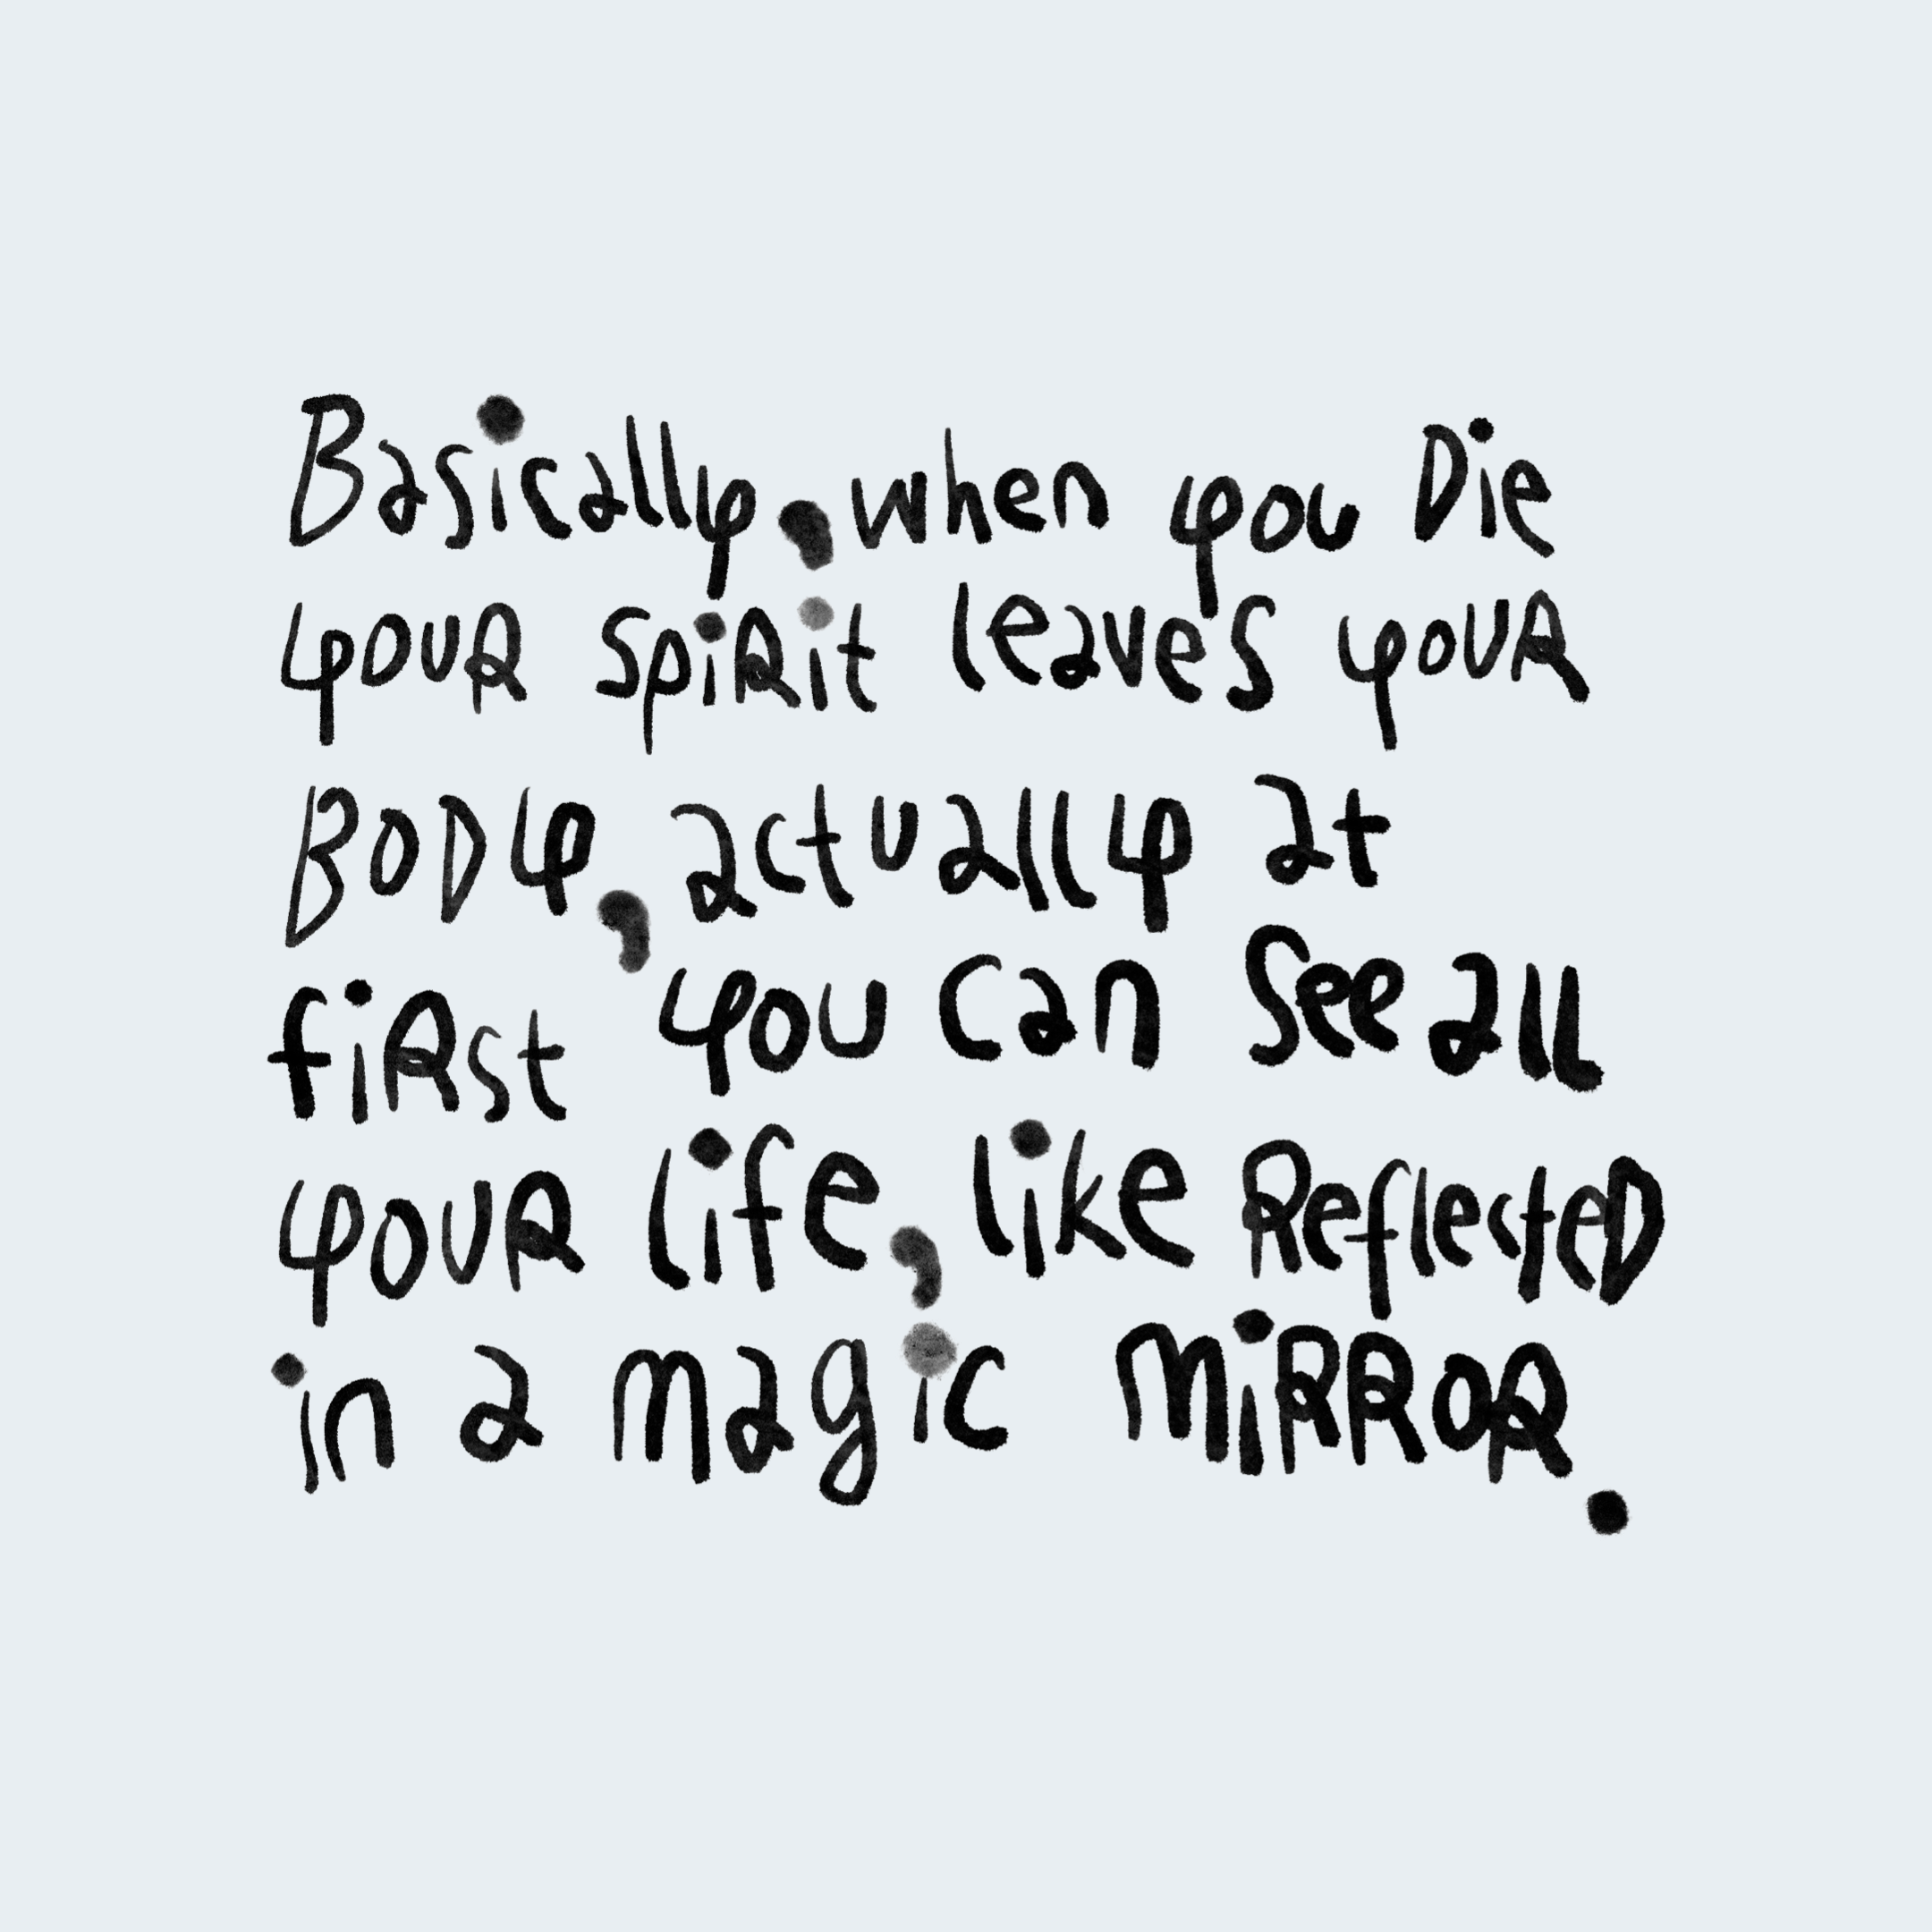 Basically, when you Die
youR spiRit leaves youR
BoDy, actually at
fiRst you can see all
youR life, like ReflecteD
in a magic miRRoR.